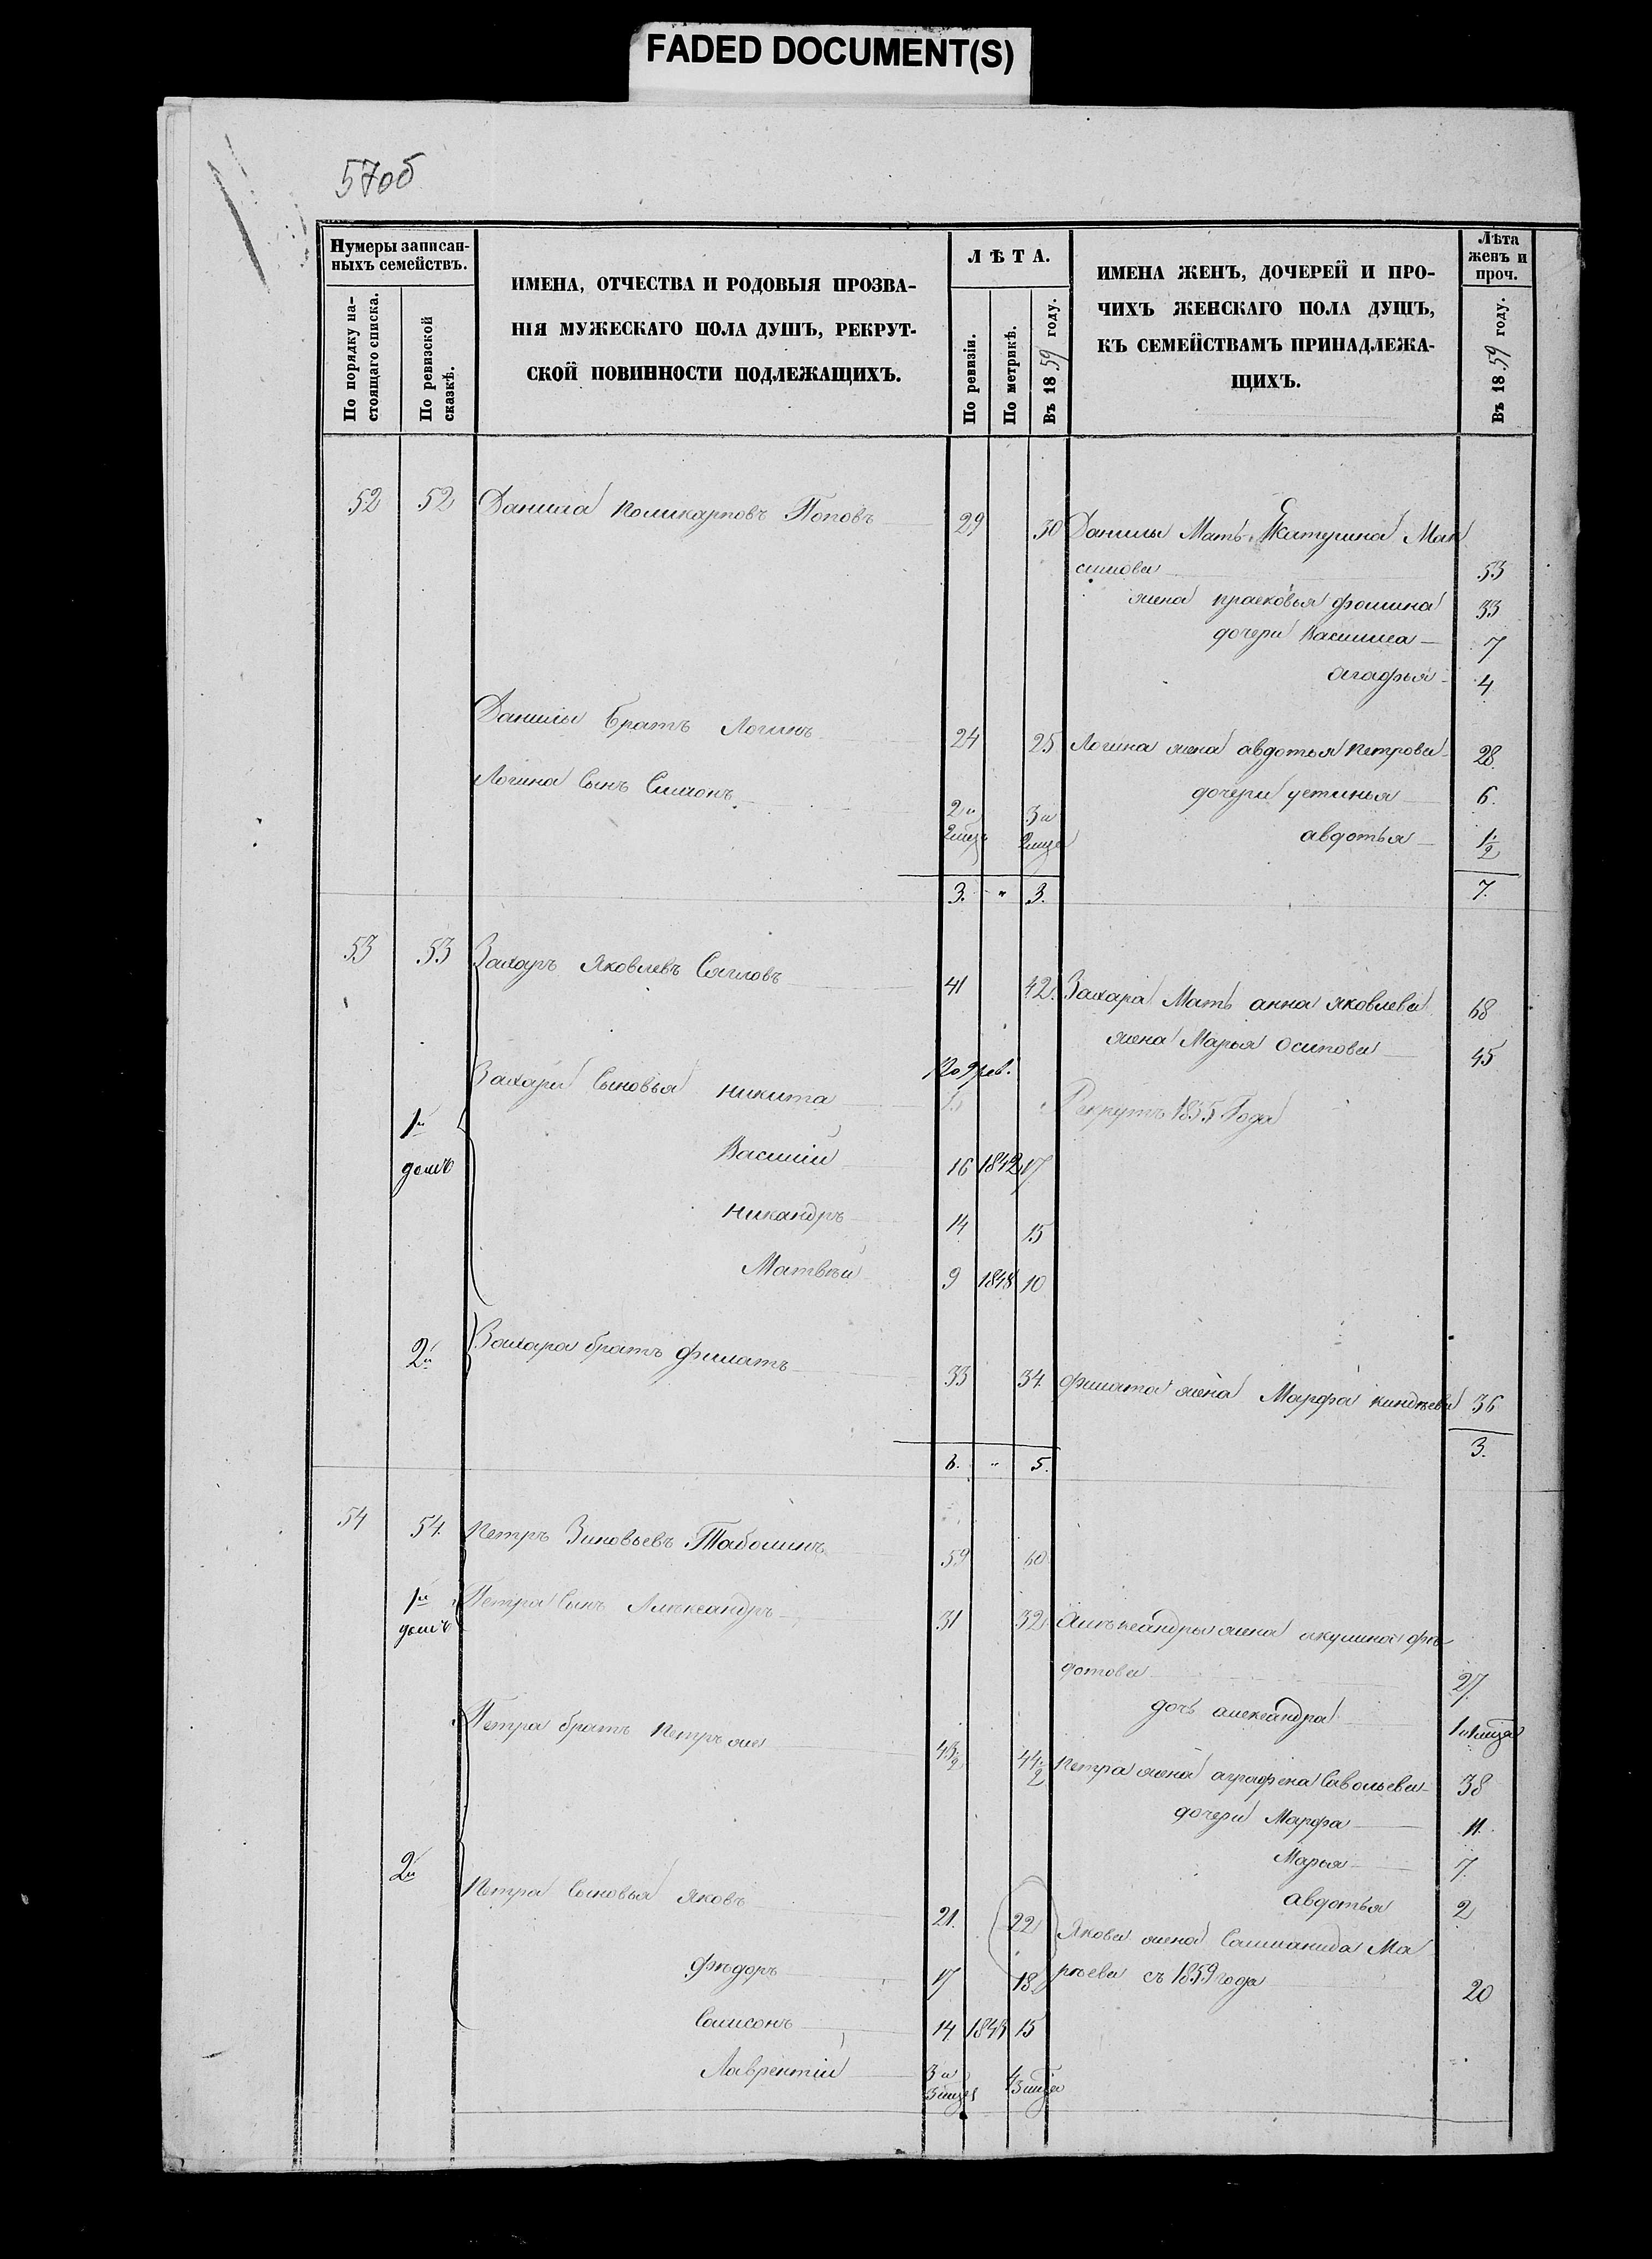 FADED DOCUMENT(S)
57об
Нумеры записан-
ныхъ семействъ.
По порядку на-
стоящаго списка.
По ревизской
сказкѣ.
ИМЕНА, ОТЧЕСТВА И РОДОВЫЯ ПРОЗВА-
НІЯ МУЖЕСКАГО ПОЛА ДУШЪ, РЕКРУТ-
СКОЙ ПОВИННОСТИ ПОДЛЕЖАЩИХЪ.
ЛѢТА.
По ревизіи.
По метрикѣ.
Въ 1859 году.
ИМЕНА ЖЕНЪ, ДОЧЕРЕЙ И ПРО-
ЧИХЪ ЖЕНСКАГО ПОЛА ДУШЪ,
КЪ СЕМЕЙСТВАМЪ ПРИНАДЛЕЖА-
ЩИХЪ.
Лѣта
женъ и
проч.
Въ 1859 году.
52 52 Данила Поликарповъ Поповъ 29 30 Данилы Мать Екатерина Мак
симова 53
жена прасковья фомина 33
дочери Василиса 7
агафья 4
Данилы братъ Логинъ 24 25 Логина жена авдотья петрова 28
Логина Сынъ Симіонъ 2 и 3 и дочери устинья 6
авдотья 1/2
3. " 3. 7.
53 53 Захаръ Яковлевъ 41 42. Захара Мать анна яковлева 68
жена Марья осипова 45
По 9 рев.
Захара Сыновья никита Рекрутъ 1855 Года
1й
домъ
Василій 16 1842 17
никандръ 14 15
Матвѣй 9 1848 10
2й Захара братъ филатъ 33 34 филата жена Марфа 36
6. " 5. 3.
54 54 Петръ Зиновьевъ 59 60
1й
домъ
Петра Сынъ Алѣксандръ 31 32 Алѣксандры жена акулина фѣ
дотова 27
дочь александра 1 и 1 мѣця
Петра братъ Петръ же 43 1/2 44 1/2 Петра жена аграфена Савельева 38
дочери Марфа 11.
Марья 7
2й
Петра Сыновья яковъ 21. 22 авдотья 2
Якова жена Соломанида Ма
фѣдоръ 17 18 съ 1859 года 20
Самсонъ 14 15
Лаврентій 3 и